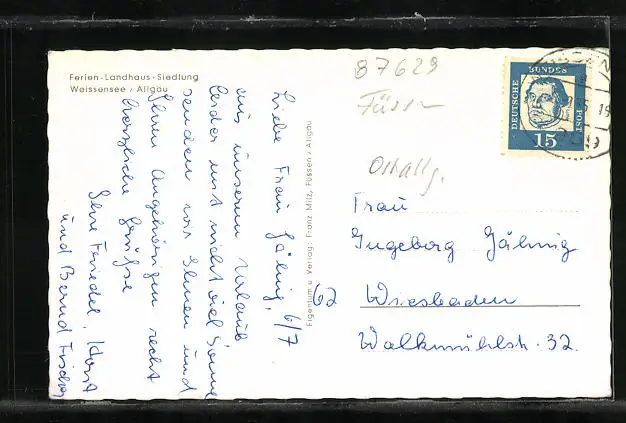 Ferien-Landhaus-Siedlung
Weissensee / Allgäu
6/7
Liebe Frau Jähnig,
aus unserem Urlaub
leider mit nicht viel Sonne
senden wir Ihnen und
Ihren Angehörigen recht
herzliche Grüße
Ihre Friedel, Horst
und Bernd Fischer
Eigentum u. Verlag: Franz Milz, Füssen / Allgäu
87629
Füssen
Ostallg.
DEUTSCHE
BUNDES
POST
15
Frau
Ingeborg Jähnig
62 Wiesbaden
Walkmühlstr. 32.